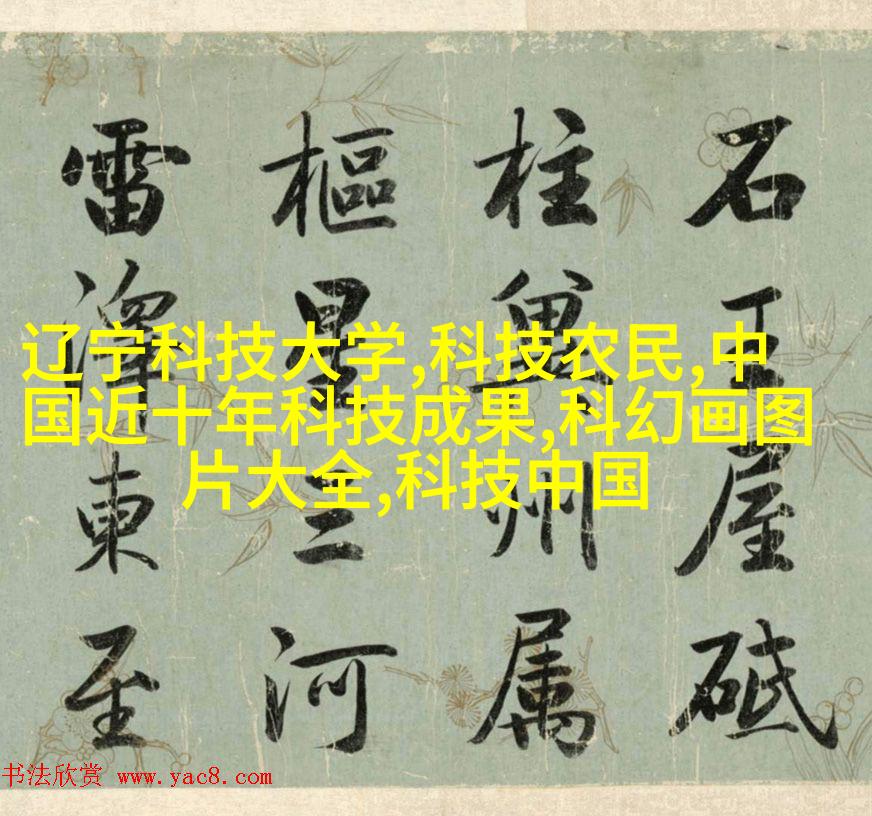 石王屋砥
柱冀州属
樞星三河
雷澤東至
辽宁科技大学,科技农民,中
国近十年科技成果,科幻画图
片大全,科技中国
书法欣赏 www.yac8.com